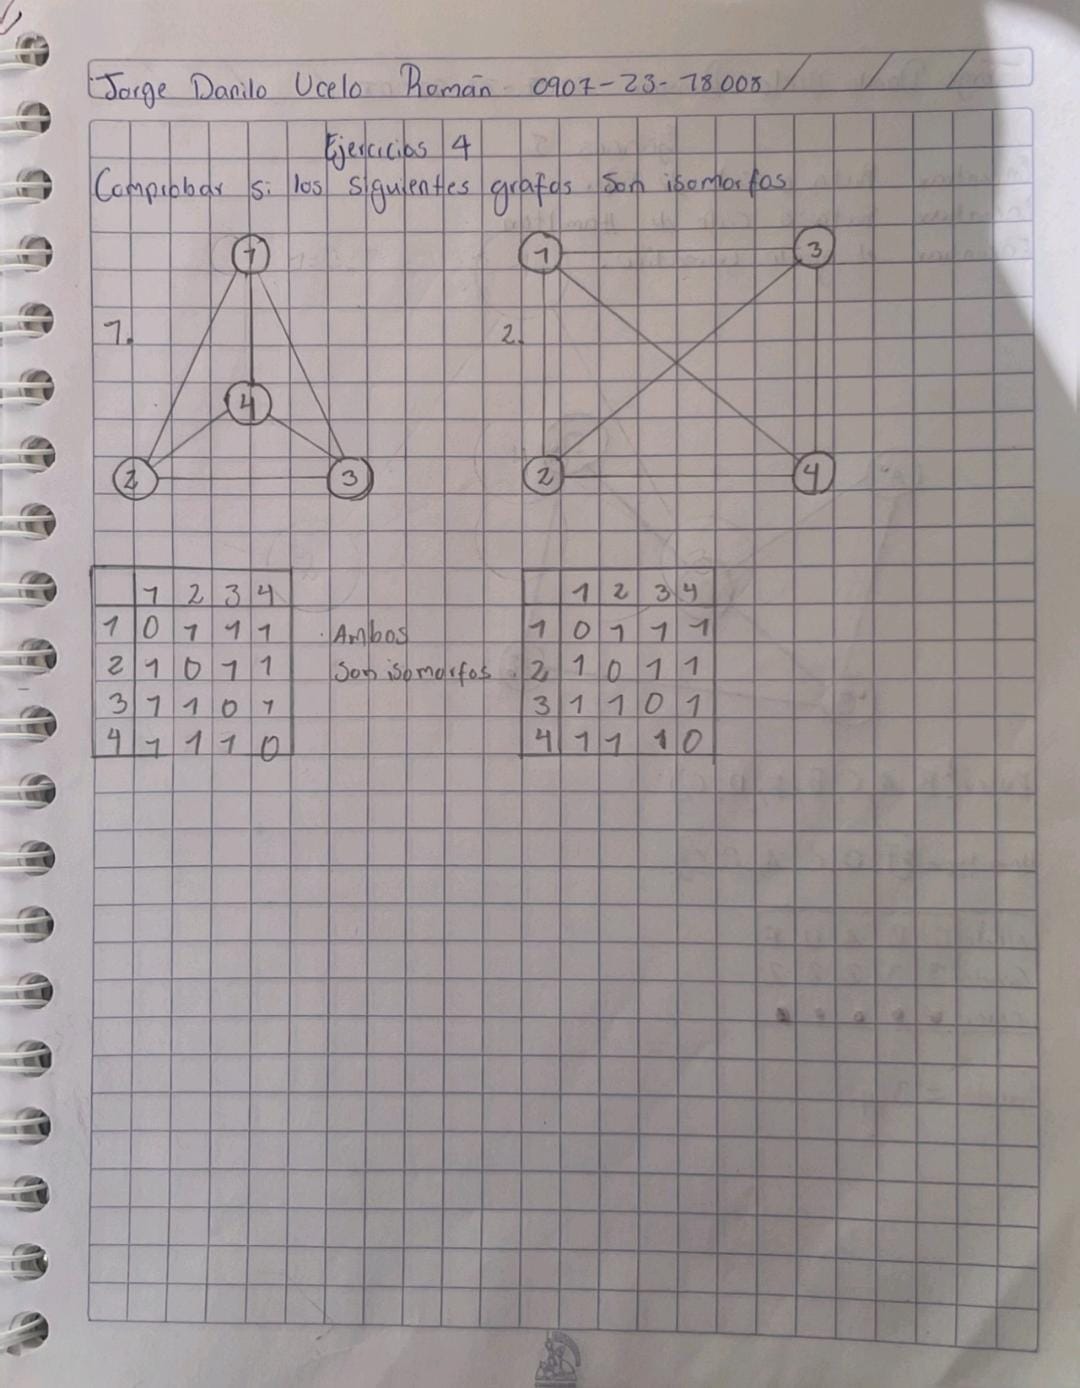 Jorge Danilo Ucelo Román 0907-23-18008 / / /
Ejercicios 4
Comprobar si los siguientes grafos son isomorfos
1.
1
4
2 3
2.
1 3
2 4
1 2 3 4
1 0 1 1 1
2 1 0 1 1
3 1 1 0 1
4 1 1 1 0
Ambos
son isomorfos
1 2 3 4
1 0 1 1 1
2 1 0 1 1
3 1 1 0 1
4 1 1 1 0